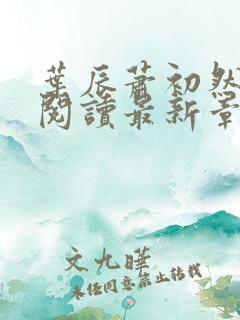 葉辰蕭初然
閱讀最新章
文九曄
未經同意禁止轉載